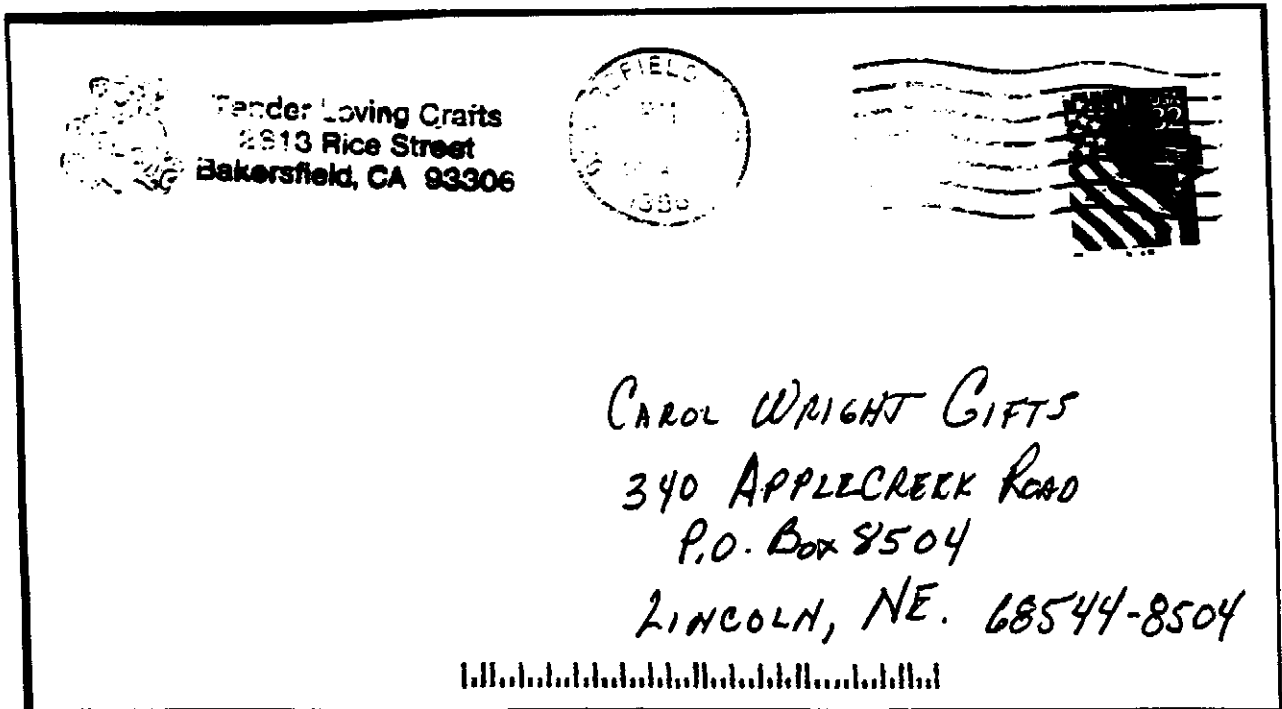 Tender Loving Crafts
Rice Street
Bakersfield, CA 93306
PM
32
CAROL WRIGHT GIFTS
340 APPLECREEK ROAD
P.O. Box 8504
LINCOLN, NE. 68544-8504